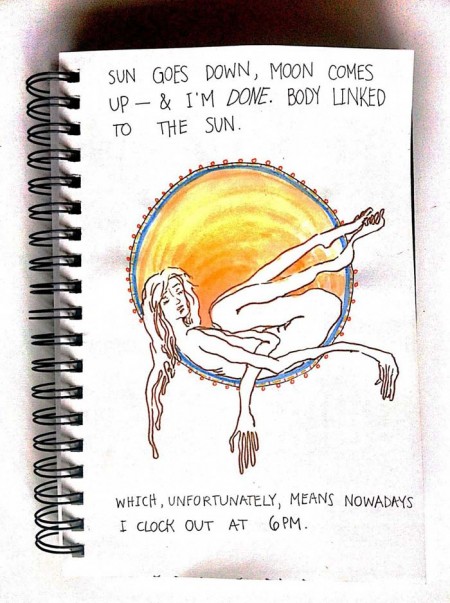 SUN GOES DOWN, MOON COMES
UP — & I'M DONE. BODY LINKED
TO THE SUN.
WHICH, UNFORTUNATELY, MEANS NOWADAYS
I CLOCK OUT AT 6PM.